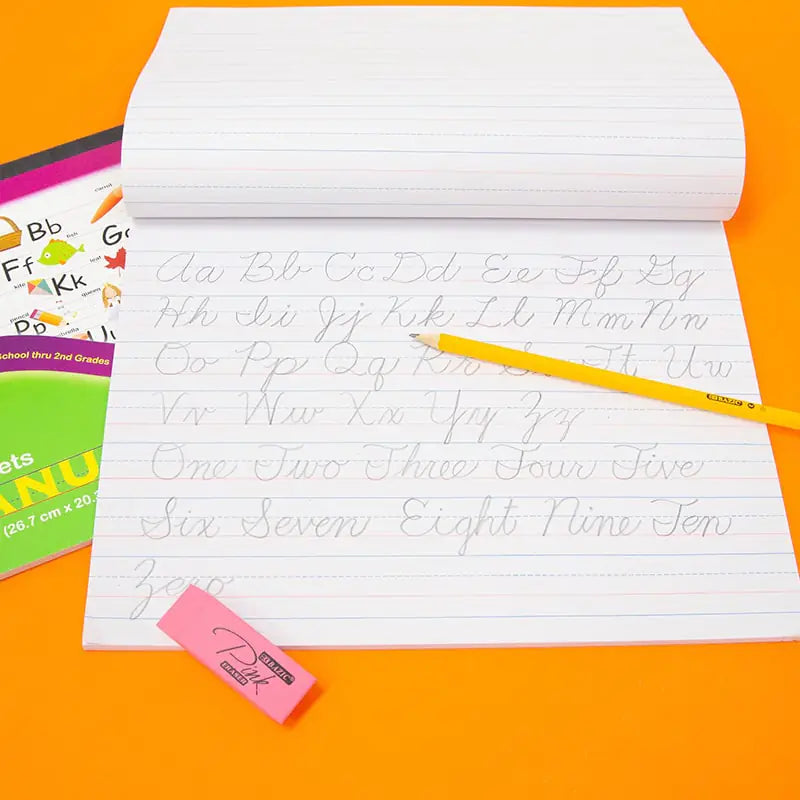 Aa Bb Cc Dd Ee Ff Gg
Hh Ii Jj Kk Ll Mm Nn
Oo Pp Qq Rr Tt Uu
Vv Ww Xx Yy Zz
One Two Three Four Five
Six Seven Eight Nine Ten
Zero
carrot
Bb
fish
Ff
leaf
kite
Kk
queen
Pp
School thru 2nd Grades
ets
ANU
(26.7 cm x 20.
BAZIC
BAZIC
Pink
ERASER